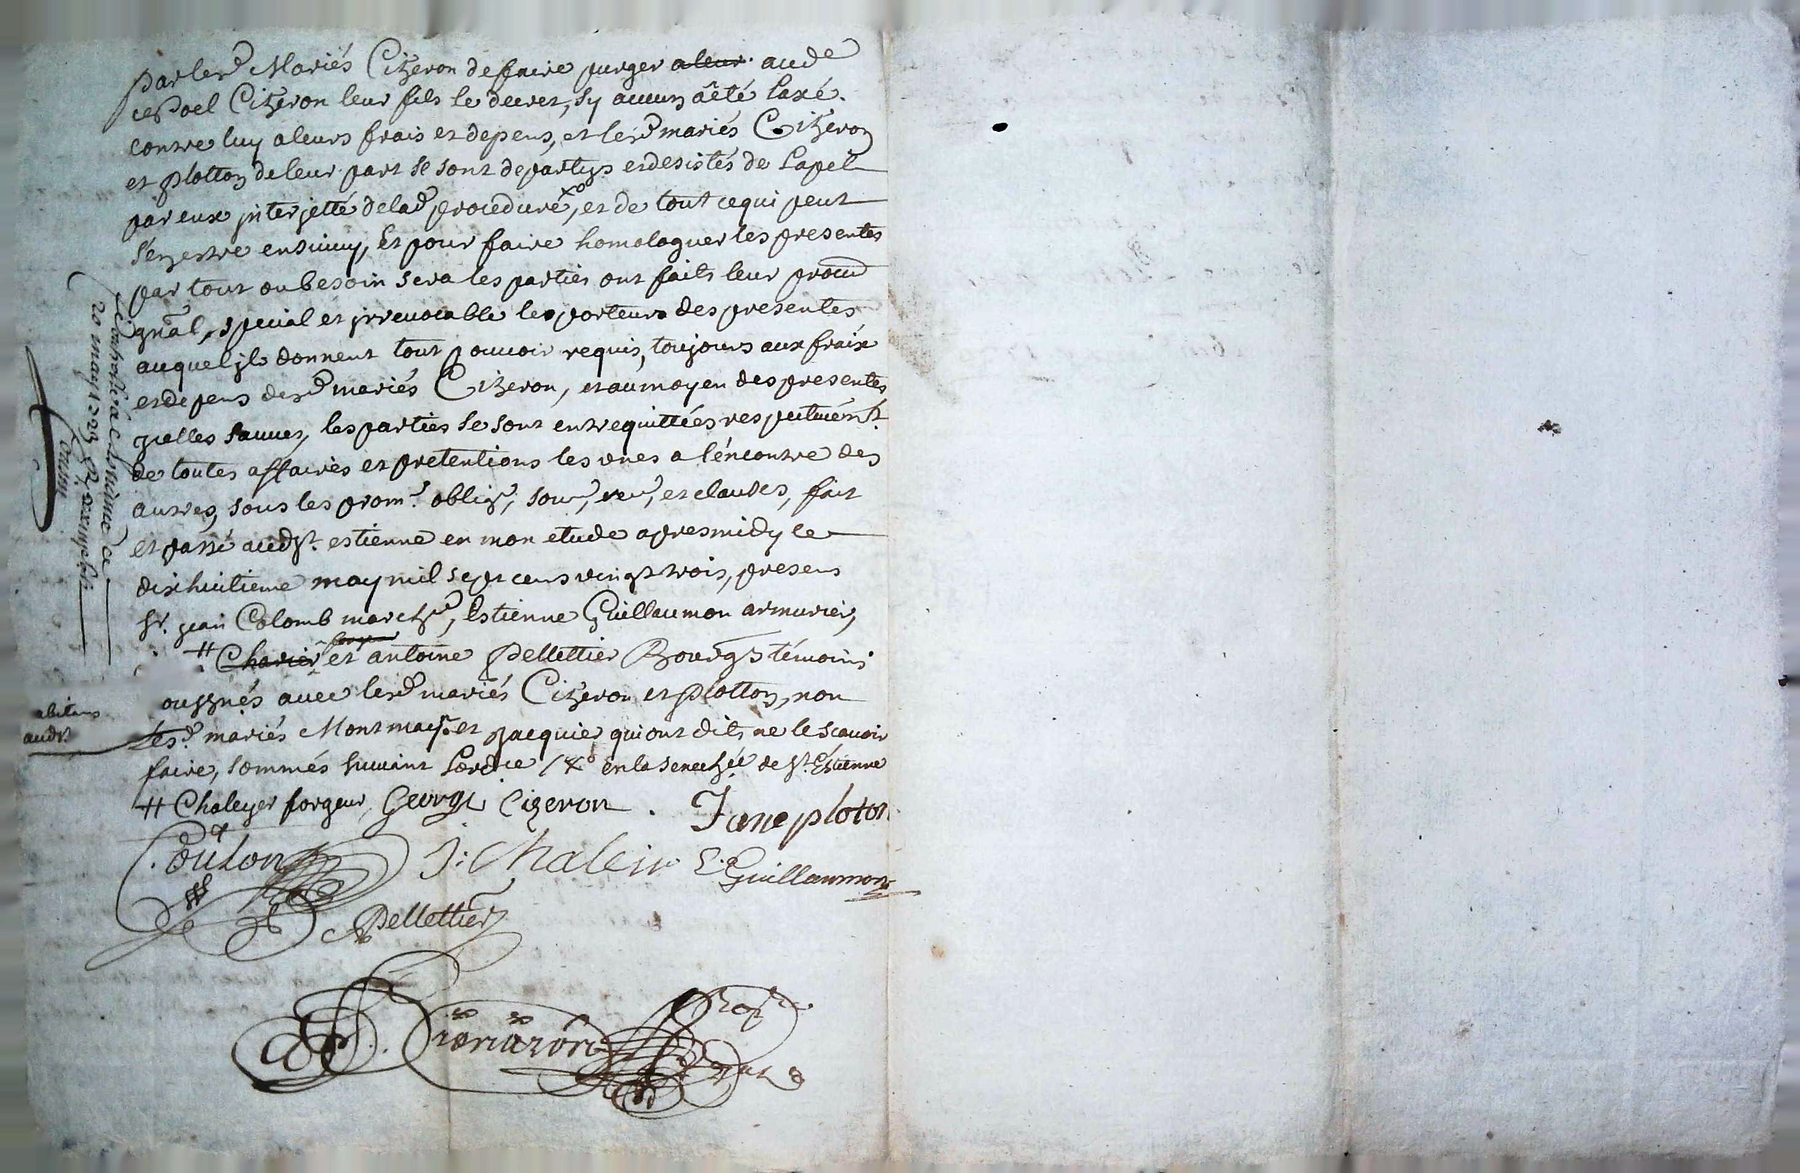 par lesd Mariés Citzeron de faire purger a leur aude
ce Noel Citzeron leur fils le decret, sy aucun a été laxé
contre luy a leurs frais et depens, et lesd mariés Citzeron
et plotton de leur part se sont departys et desistés de Lapel
par eux jnterjetté de lad procedure, et de tout ce qui peut
s'en estre ensuivy, Et pour faire homologuer les presentes
par tout ou besoin sera les parties ont faits leur procur
gnal, special et jrrevocable les porteurs des presentes
auquel jls donnent tout pouvoir requis, toujours aux fraix
et depens desd mariés Citzeron, et au moyen des presentes
jcelles sauves, les parties se sont entrequittées respectivemt
de toutes affaires et pretentions les unes a l'encontre des
autres, sous les prom. oblig, soum, ren, et clauses, fait
et passé aud st. estienne en mon etude apres midy le
dixhuitieme may mil sept cens vingt trois, presens
sr. jean Colomb march, Estienne Guillaumon armurier,
# Charier forgeur et antoine Pellettier Bourgs témoins
habitans
aud st
soussnés avec lesd mariés Citzeron et plotton, non
lesd. mariés Montmay et jacquier qui ont dit ne le scavoir
faire, sommés suivant Lord.ce en la senechée de St. Estienne
# Chaleyer forgeur, George Cizeron. Jane ploton
J: Chaleir E. Guillaumon
Pellettier
Controllé a st estienne ce
20 may 1723